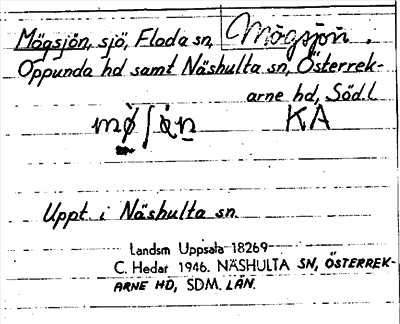 Mögsjön, sjö, Floda sn, Mögsjön.
Oppunda hd samt Näshulta sn, Österrek-
arne hd, Söd. l.
KA
Uppt. i Näshulta sn.
Landsm Uppsala 18269
C. Hedar 1946. NÄSHULTA SN, ÖSTERREK-
ARNE HD, SDM. LÄN.